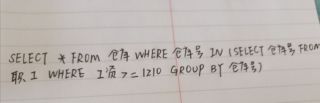 SELECT * FROM 仓库 WHERE 仓库号 IN (SELECT 仓库号 FROM
职工 WHERE 工资 >= 1210 GROUP BY 仓库号)